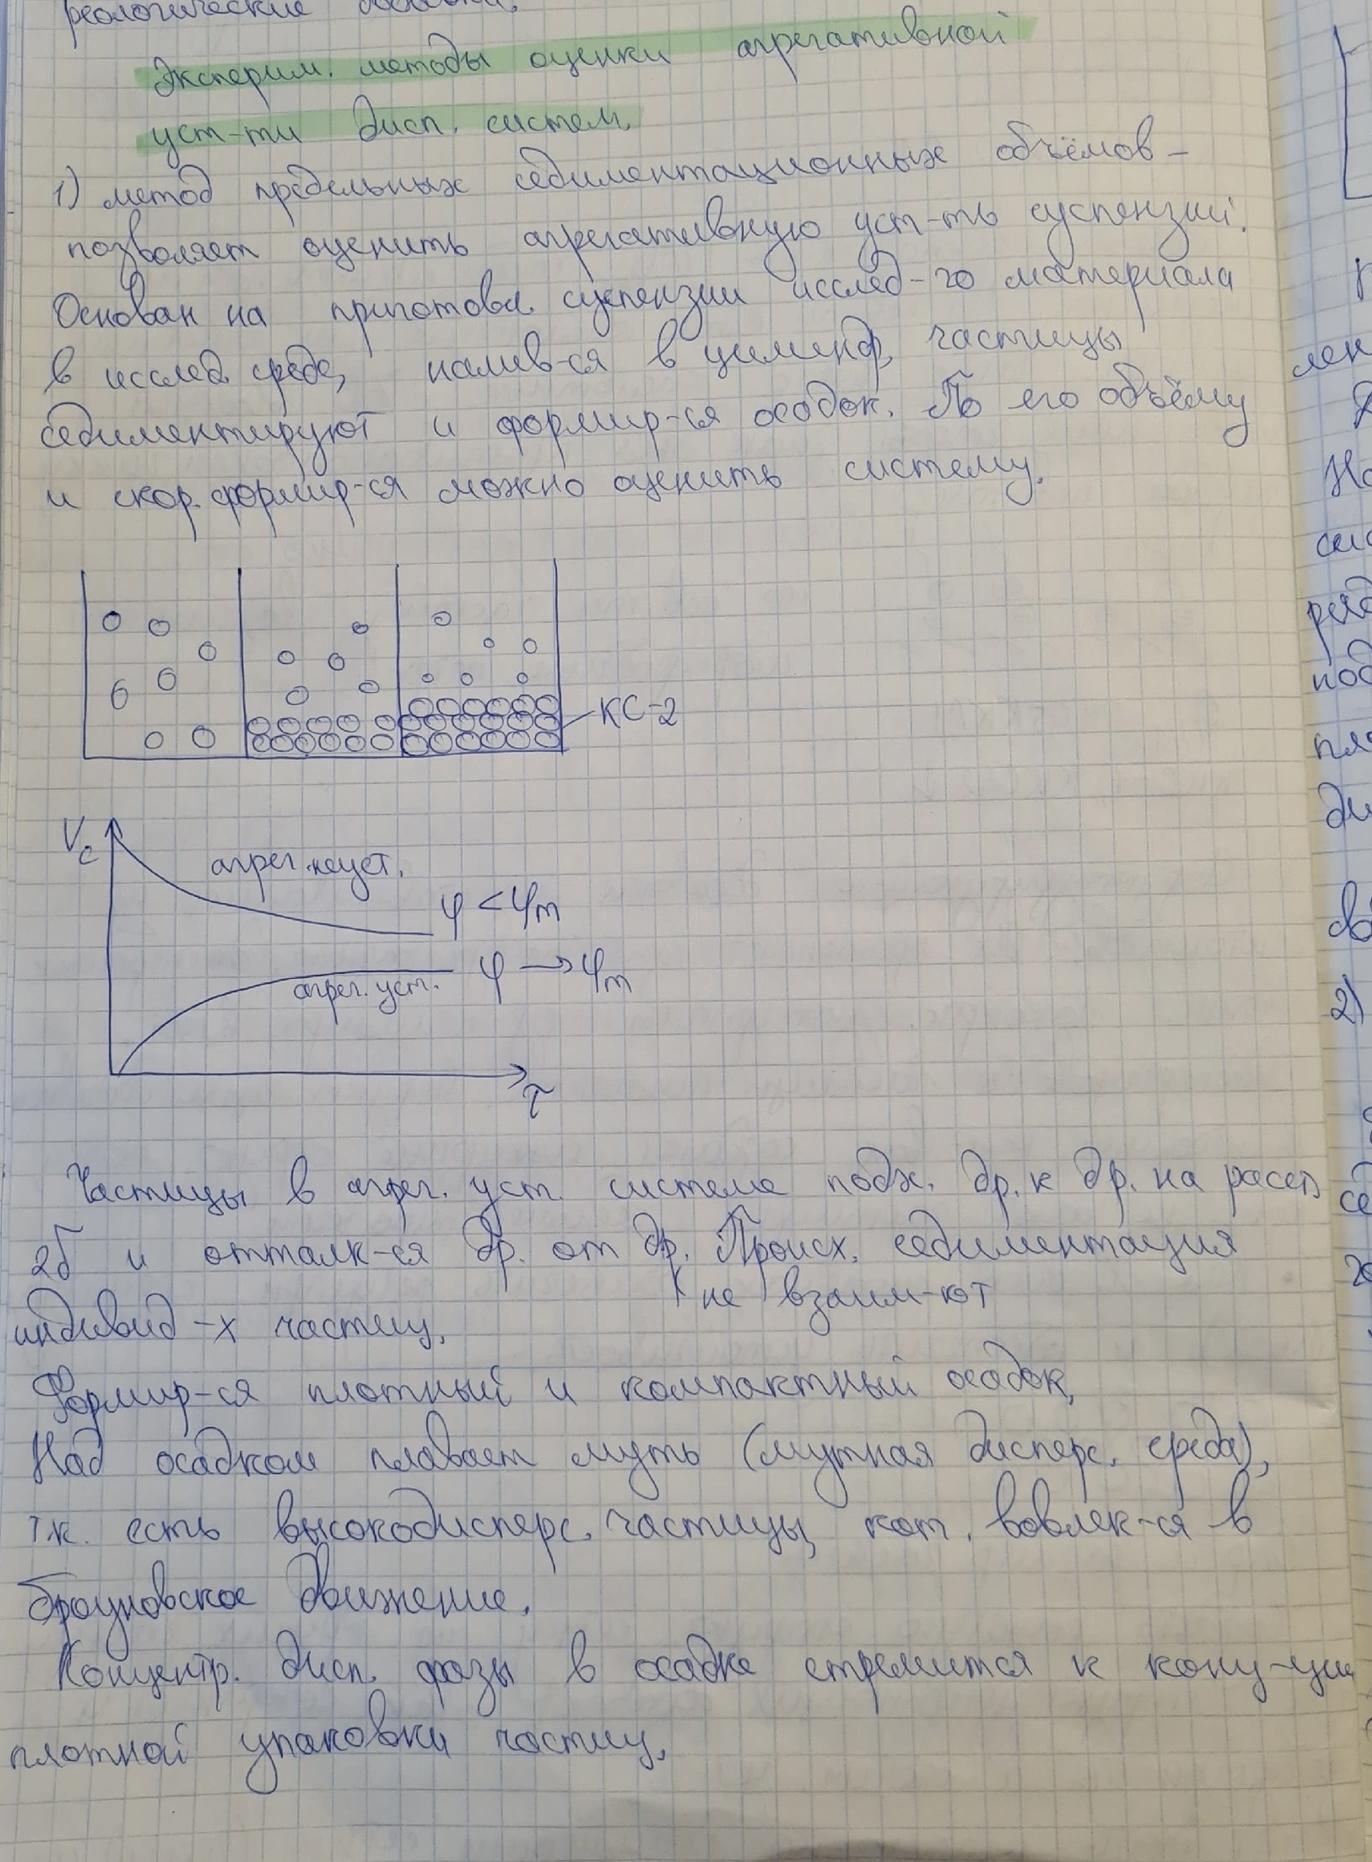 реологические
Эксперим. методы оценки агрегативной
уст-ти дисп. систем.
1) метод предельных седиментационных объёмов –
позволяет оценить агрегативную уст-ть суспензий.
Основан на приготовл. суспензии исслед-го материала
в исслед. среде, налив-ся в цилиндр, частицы
седиментируют и формир-ся осадок. По его объёму
и скор. формир-ся можно оценить систему.
КС-2
Vc
агрег. неуст.
φ < φm
φ → φm
агрег. уст.
τ
Частицы в агрег. уст. системе подх. др. к др. на расст.
2δ и отталк-ся др. от др. Происх. седиментация
не взаим-ют
индивид-х частиц.
Формир-ся плотный и компактный осадок.
Над осадком плавает муть (мутная дисперс. среда),
т.к. есть высокодисперс. частицы, кот. вовлек-ся в
броуновское движение.
Концентр. дисп. фазы в осадке стремится к конц-ции
плотной упаковки частиц.
2)